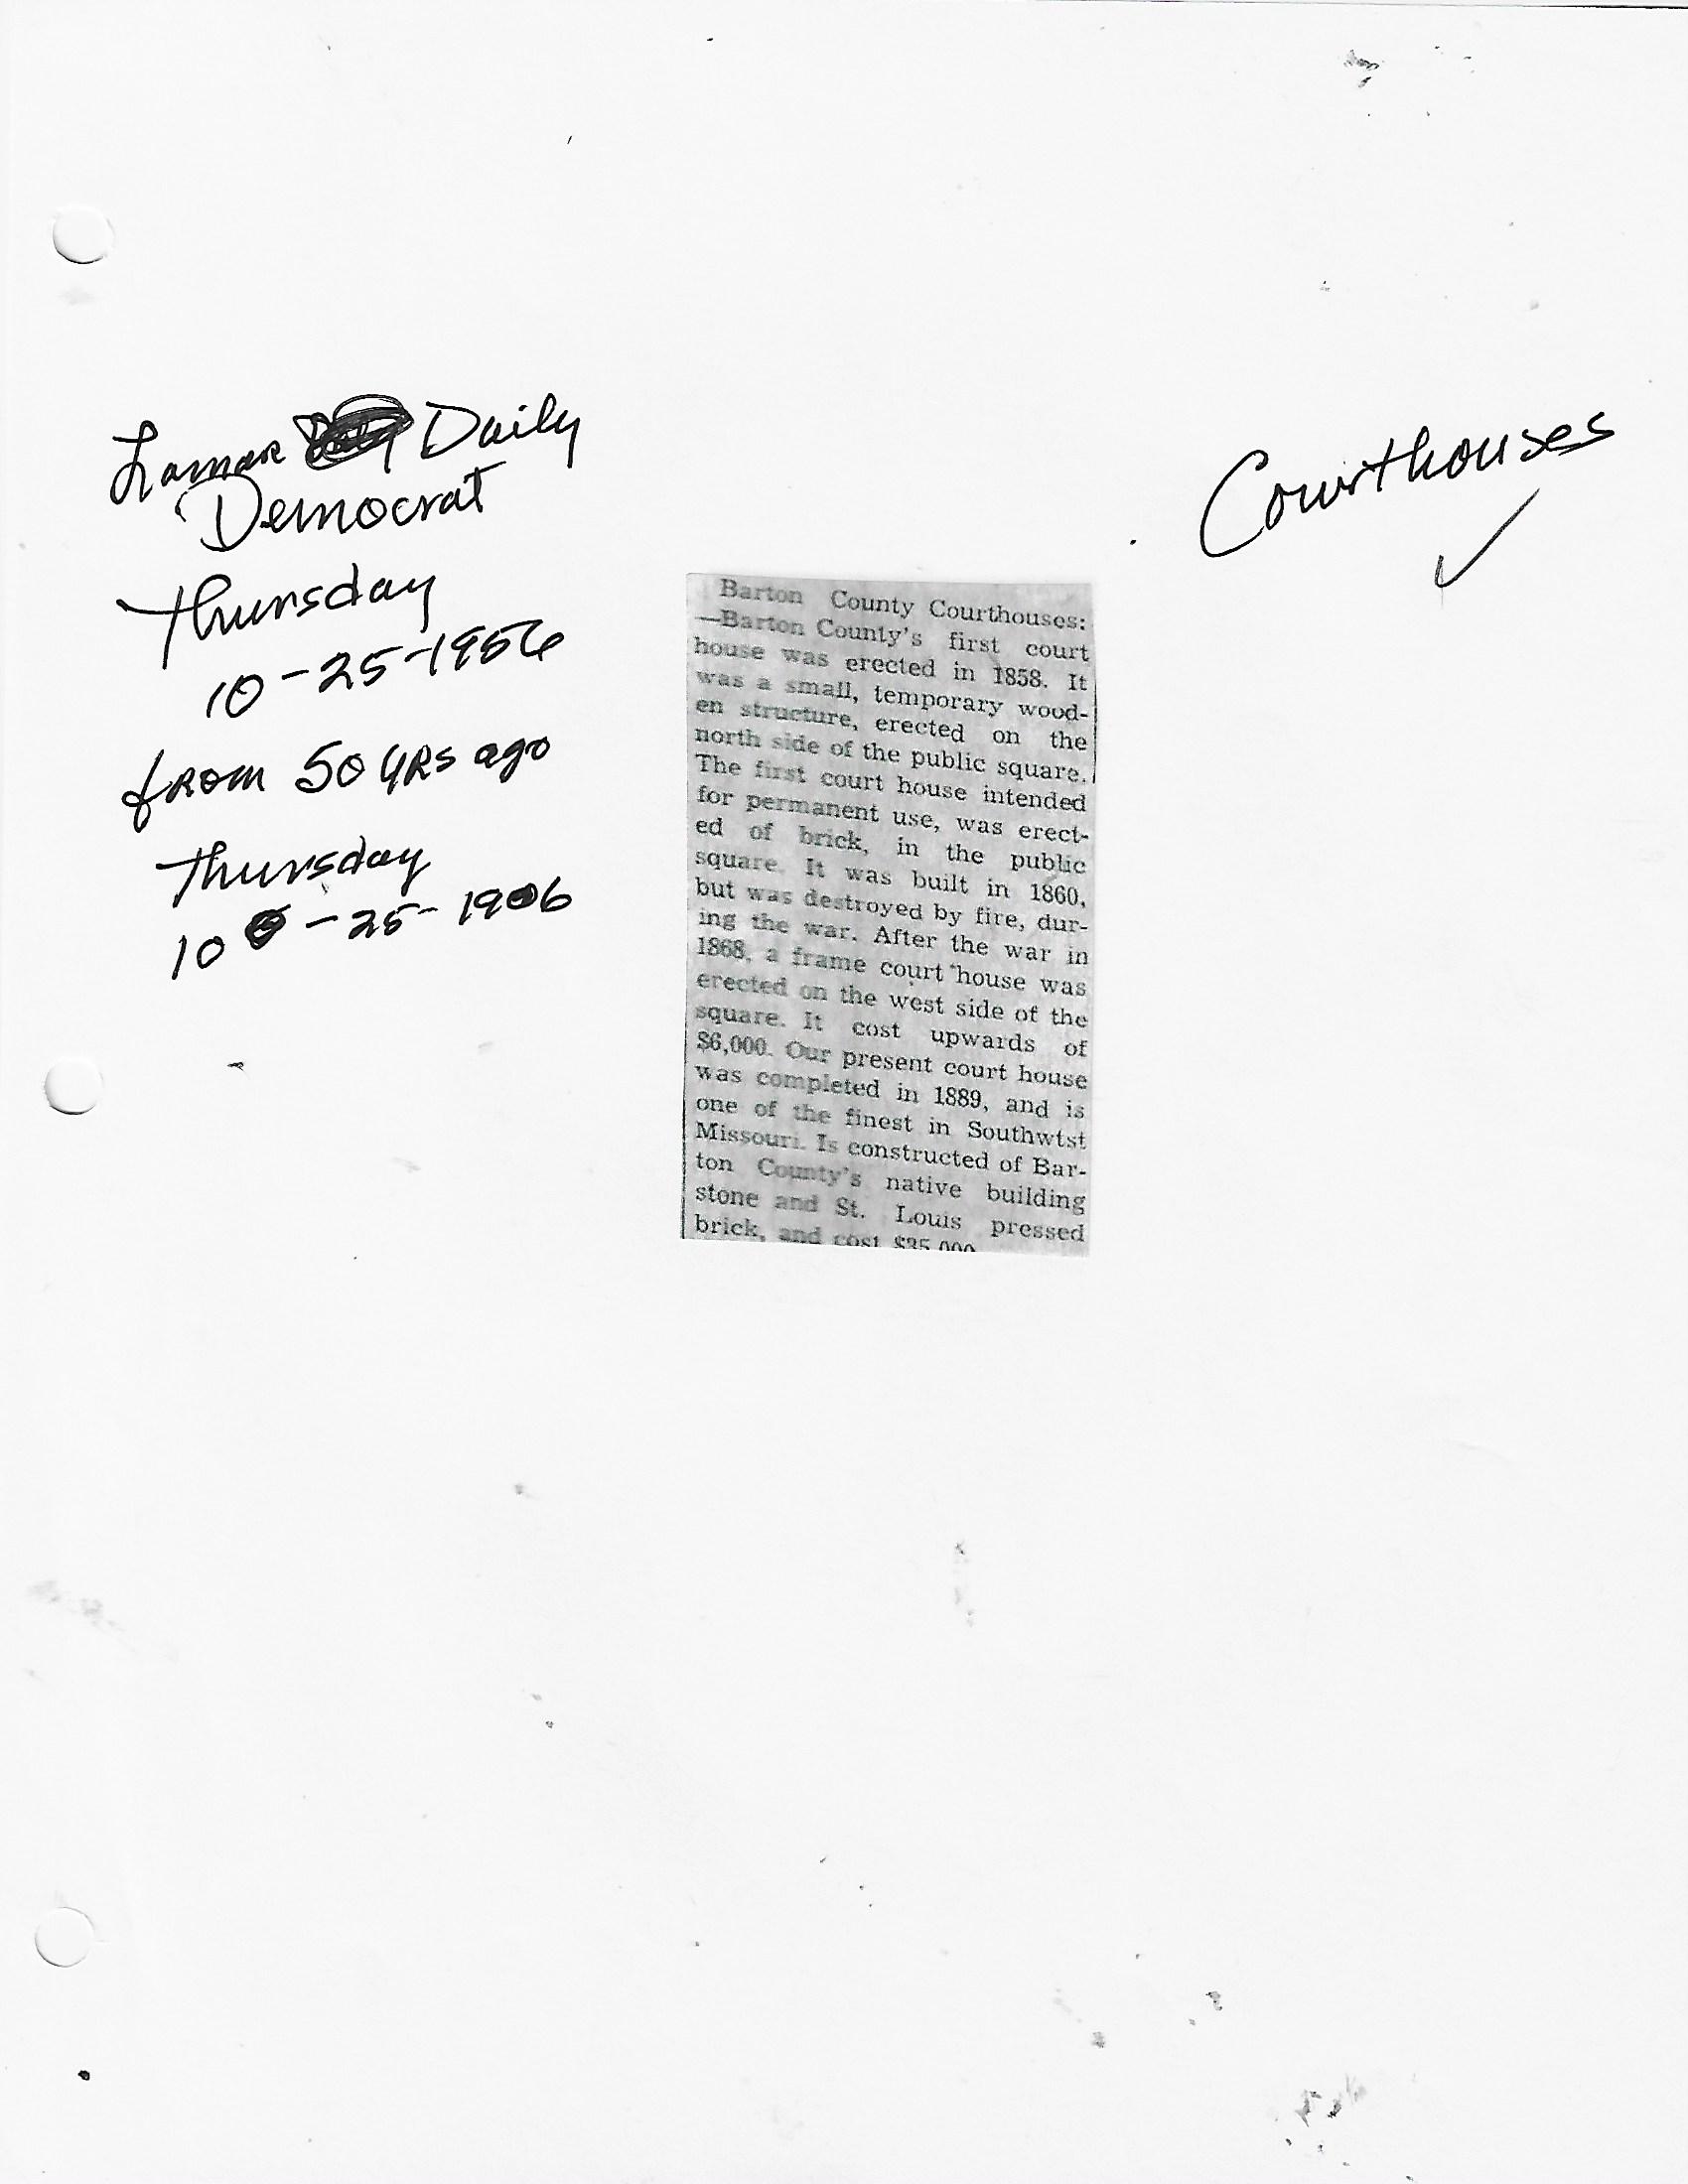 Lamar Daily
Democrat
Thursday
10-25-1956
from 50 YRS ago
Thursday
10 -25-1906
Courthouses
Barton County Courthouses:
—Barton County's first court
house was erected in 1858. It
was a small, temporary wood-
en structure, erected on the
north side of the public square.
The first court house intended
for permanent use, was erect-
ed of brick, in the public
square. It was built in 1860,
but was destroyed by fire, dur-
ing the war. After the war in
1868, a frame court house was
erected on the west side of the
square. It cost upwards of
$6,000. Our present court house
was completed in 1889, and is
one of the finest in Southwtst
Missouri. Is constructed of Bar-
ton County's native building
stone and St. Louis pressed
brick, and cost $35,000